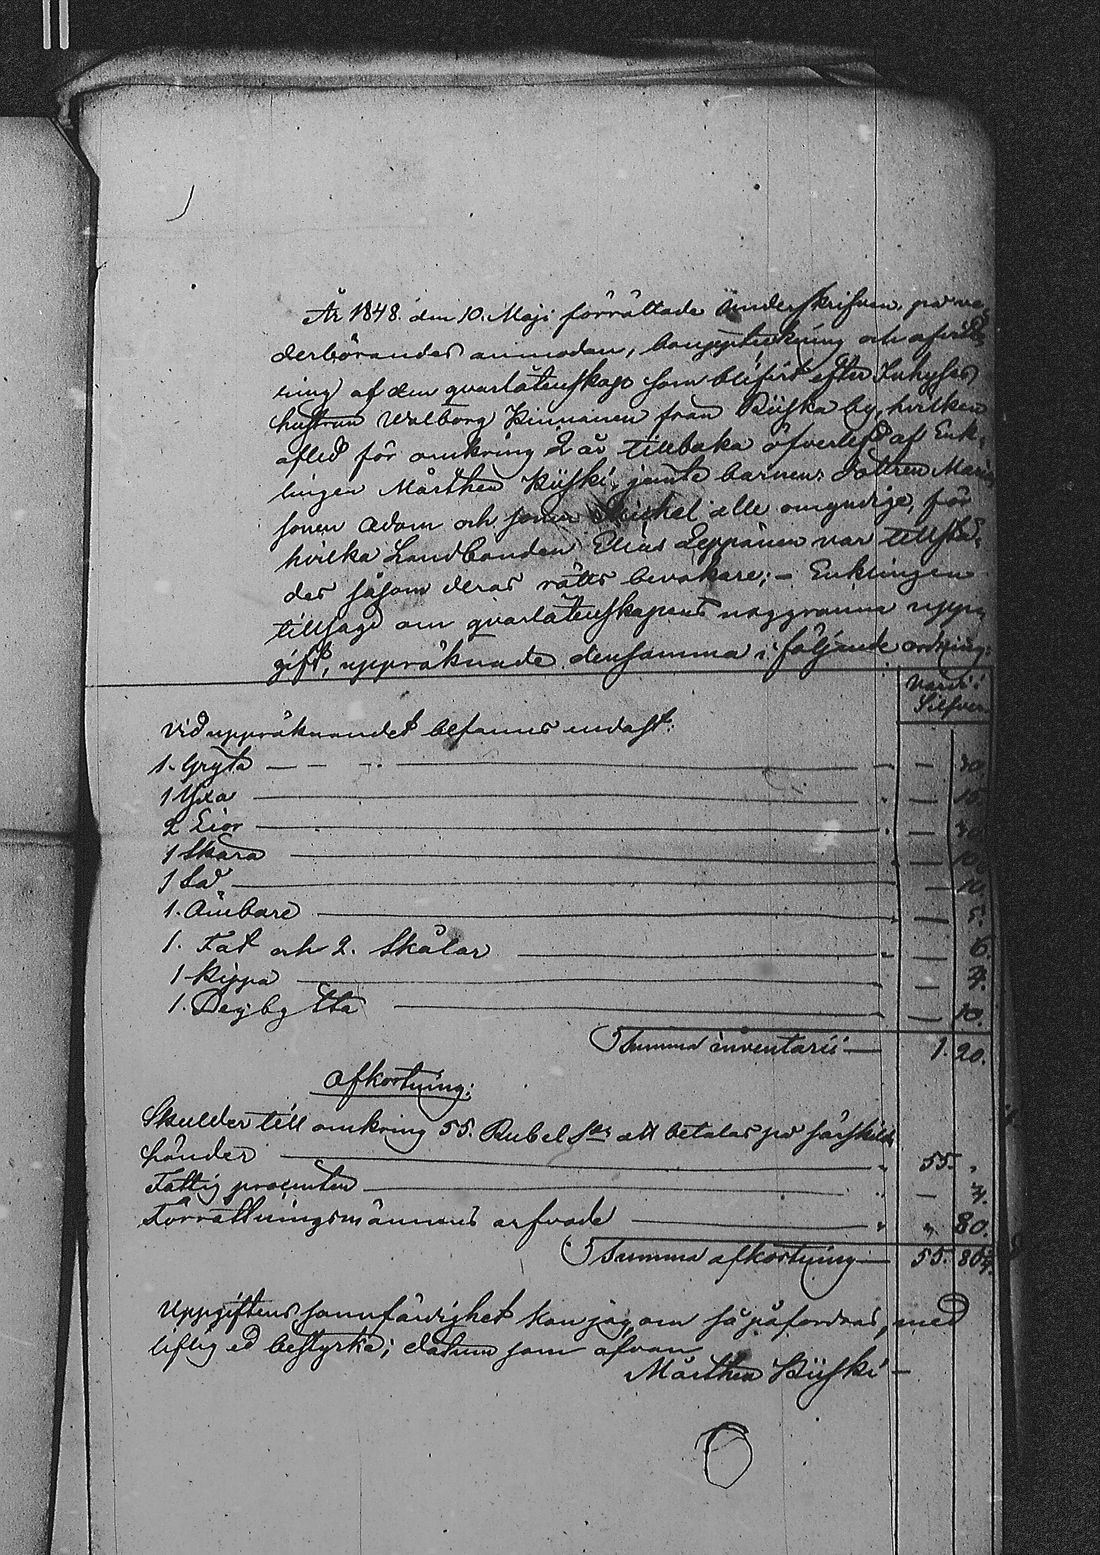 År 1848. den 10. Maji förrättade underskrifven, på ve-
derbörandes anmodan, bouppteckning och afvitt-
ring af den qvarlåtenskap som blifvit efter Inhyses
hustrun Walborg Pinnanen från Kiiska by, hvilken
afled för omkring 2 år tillbaka öfverlefd af Enk-
lingen Mårthen Kiiski, jemte barnen: Dottren Maria,
sonen Adam och sonen Michel alle omyndige, för
hvilka Landbonden Elias Leppänen var tillstä-
des såsom deras rätts bevakare; – Enklingen
tillsagd om qvarlåtenskapens noggranna uppe
gift, uppräknade densamma i följande ordning:
Värd i
Silfver.
Vid uppräknandet befanns endast:
1. Gryta — — 40.
1 Yxa — — 15.
2 Liar — — 20.
1 Skära — — 10.
1 Så — — 10.
1. Ämbare — — 5.
1. Fat och 2. Skålar — — 6.
1 Kippa — — 4.
1. Degbytta — — 10.
Summa inventarii — 1. 20.
Afkortning:
Skulder till omkring 55. Rubel S:r att betalas på särskilda
händer — 55. „
Fattig procenten — — 4.
Förrättningsmännens arfvode — „ 80.
Summa afkortning — 55. 84.
Uppgiftens sannfärdighet kan jag, om så påfordras, med
liflig ed bestyrka; datum som ofvan
Mårthen Kiiski –